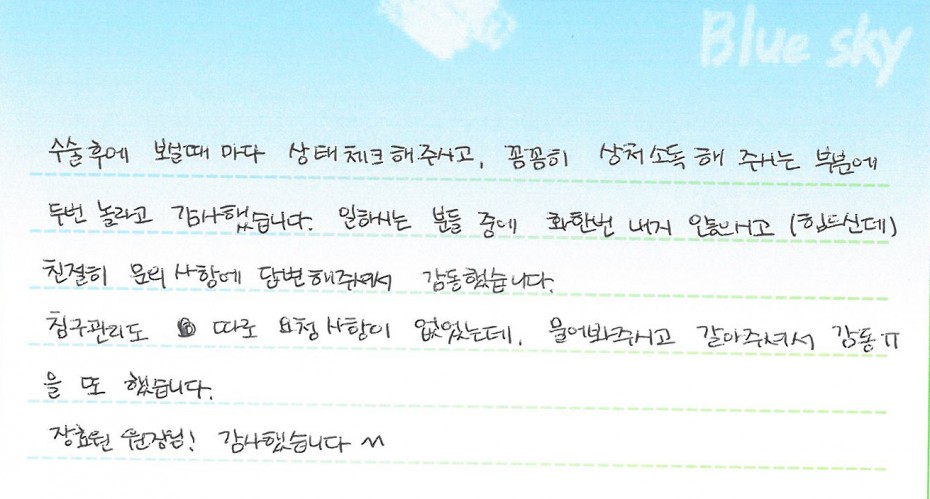 Blue sky
수술후에 보실때 마다 상태체크해주시고, 꼼꼼히 상처소독해 주시는 부분에
두번 놀라고 감사했습니다. 일하시는 분들 중에 화한번 내지 않으시고 (힘드신데)
친절히 문의사항에 답변해주셔서 감동했습니다.
침구관리도 따로 요청사항이 없었는데, 물어봐주시고 갈아주셔서 감동ㅠ
을 또 했습니다.
장효원 원장님! 감사했습니다 ^^